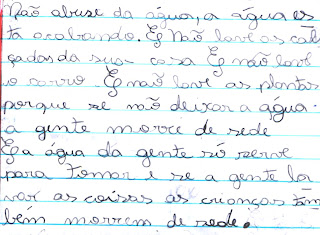 Não abuse da água, a água es
tá acabando. E Não lave as cal
çadas da sua casa E não lave
o carro. E não lave as plantas
porque se não deixar a água.
a gente morre de sede
E a água da gente só serve
para tomar i se a gente la
var as coisas as crianças tam
bém morrem de sede.